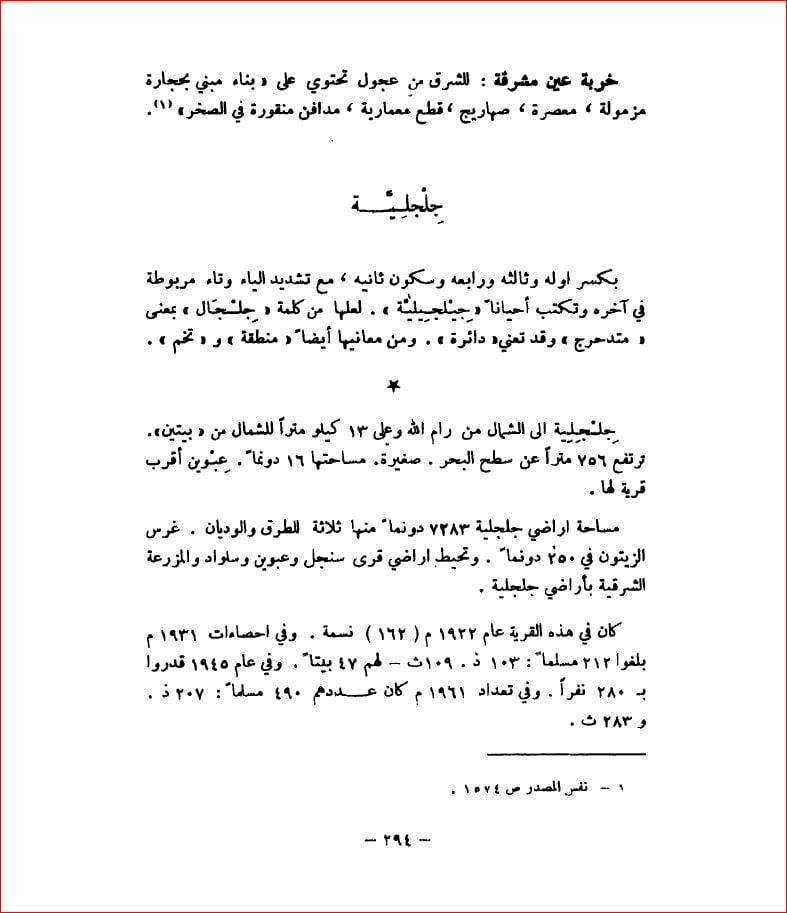 خربة عين مشرقة : للشرق من عجول تحتوي على « بناء مبني بحجارة
مزمولة ، معصرة ، صهاريج ، قطع معمارية ، مدافن منقورة في الصخر » (١).
جِلْجِلِيَّــة
بكسر اوله وثالثه ورابعه وسكون ثانيه ، مع تشديد الياء وتاء مربوطة
في آخره وتكتب أحياناً « جِيْلجِيليّة » . لعلها من كلمة « جِلْجَال » بمعنى
« متدحرج » وقد تعني « دائرة » . ومن معانيها أيضاً « منطقة » و « تخم » .
★
جِلْجِلِية الى الشمال من رام الله وعلى ١٣ كيلو متراً للشمال من « بيتين».
ترتفع ٧٥٦ متراً عن سطح البحر . صغيرة. مساحتها ١٦ دونماً . عِبْوين أقرب
قرية لها .
مساحة اراضي جلجلية ٧٢٨٣ دونماً منها ثلاثة للطرق والوديان . غرس
الزيتون في ٢٥٠ دونماً . وتحيط اراضي قرى سنجل وعبوين وسلواد والمزرعة
الشرقية بأراضي جلجلية .
كان في هذه القرية عام ١٩٢٢ م ( ١٦٢ ) نسمة . وفي احصاءات ١٩٣١ م
بلغوا ٢١٢ مسلماً : ١٠٣ ذ . ١٠٩ث – لهم ٤٧ بيتاً . وفي عام ١٩٤٥ قدروا
بـ ٢٨٠ نفراً . وفي تعداد ١٩٦١ م كان عـــددهم ٤٩٠ مسلماً : ٢٠٧ ذ .
و ٢٨٣ ث .
١ – نفس المصدر ص ١٥٧٤ .
– ٢٩٤ –